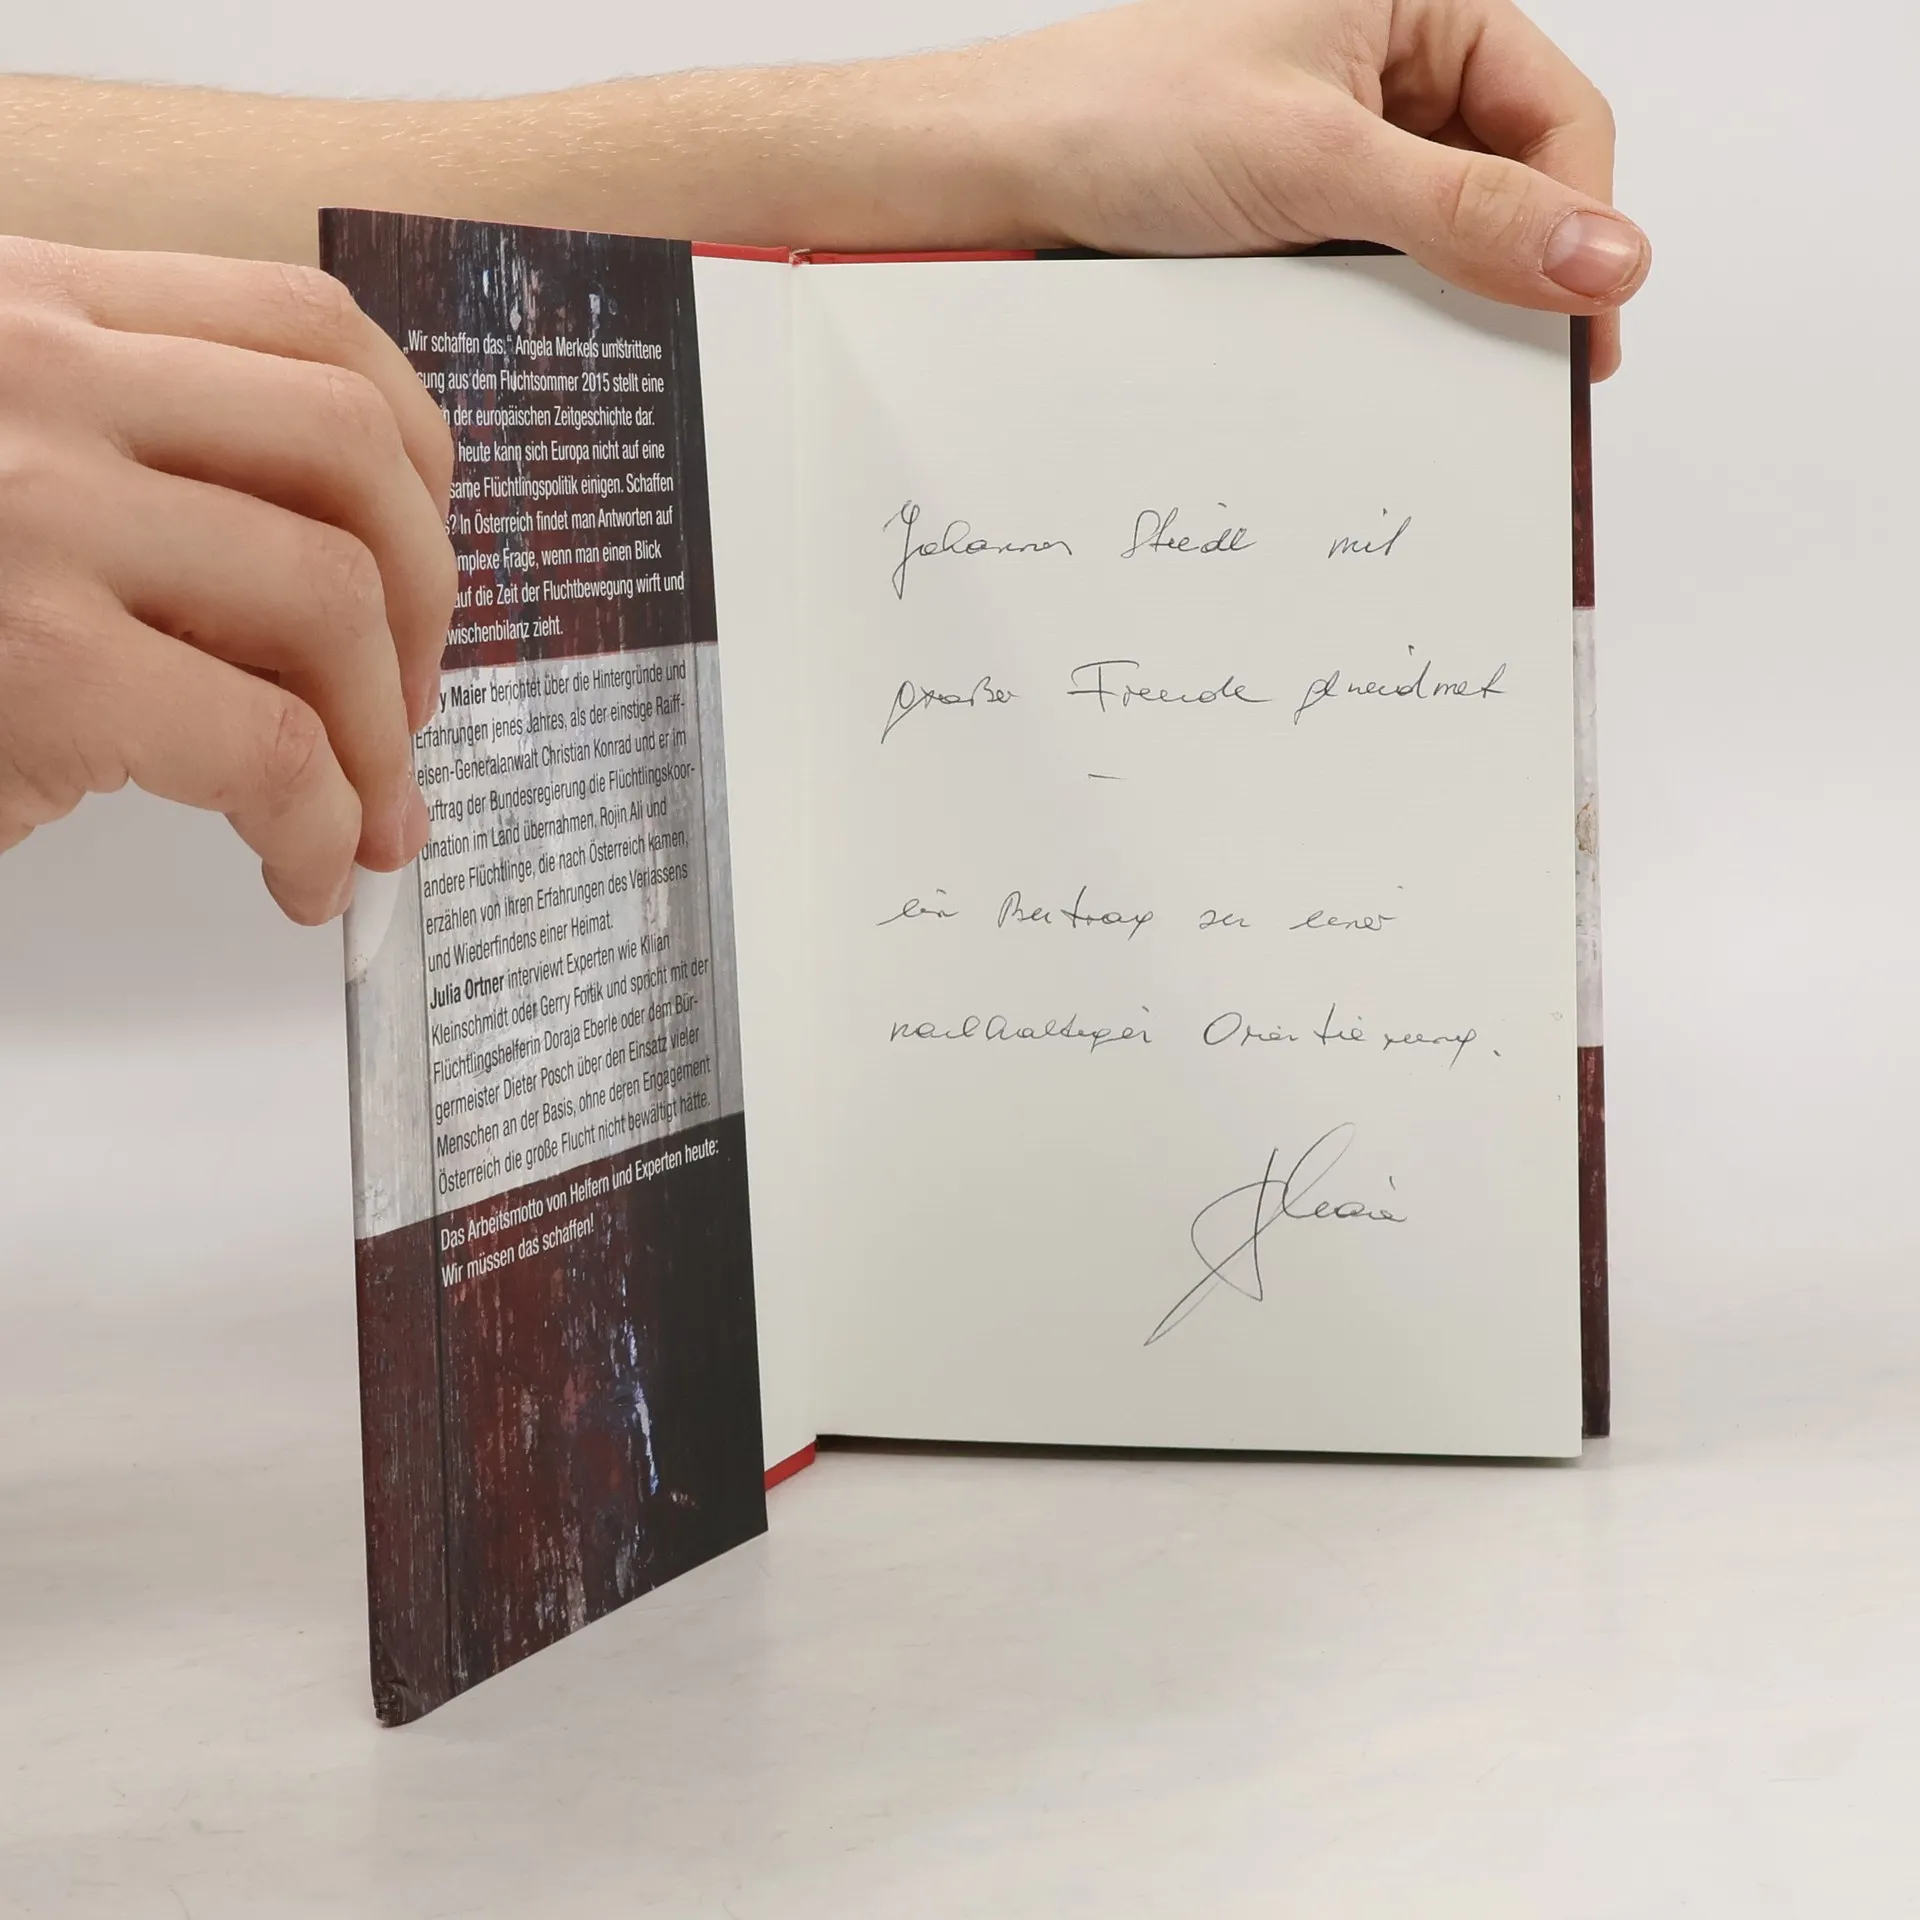 „Wir schaffen das.“ Angela Merkels umstrittene
sung aus dem Fluchtsommer 2015 stellt eine
der europäischen Zeitgeschichte dar.
heute kann sich Europa nicht auf eine
same Flüchtlingspolitik einigen. Schaffen
s? In Österreich findet man Antworten auf
mplexe Frage, wenn man einen Blick
auf die Zeit der Fluchtbewegung wirft und
wischenbilanz zieht.
y Maier berichtet über die Hintergründe und
Erfahrungen jenes Jahres, als der einstige Raiff-
eisen-Generalanwalt Christian Konrad und er im
uftrag der Bundesregierung die Flüchtlingskoor-
dination im Land übernahmen. Rojin Ali und
andere Flüchtlinge, die nach Österreich kamen,
erzählen von ihren Erfahrungen des Verlassens
und Wiederfindens einer Heimat.
Julia Ortner interviewt Experten wie Kilian
Kleinschmidt oder Gerry Foitik und spricht mit der
Flüchtlingshelferin Doraja Eberle oder dem Bür-
germeister Dieter Posch über den Einsatz vieler
Menschen an der Basis, ohne deren Engagement
Österreich die große Flucht nicht bewältigt hätte.
Das Arbeitsmotto von Helfern und Experten heute:
Wir müssen das schaffen!
Johannes mit
großer Freude gewidmet
–
ein Beitrag zu einer
nachhaltigen Orientierung.